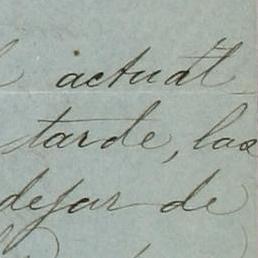 actual
tarde, las
dejar de